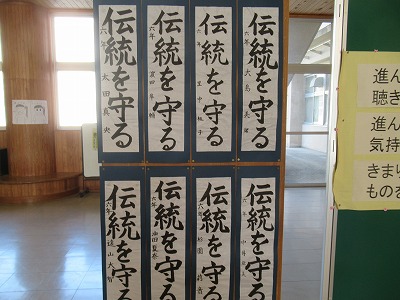 伝統を守る
六年 大島
伝統を守る
六年
伝統を守る
六年
伝統を守る
六年 太田真央
伝統を守る
六年
伝統を守る
六年
伝統を守る
六年
伝統を守る
六年 遠山大智
進ん
聴き
進ん
気持
きまり
ものを